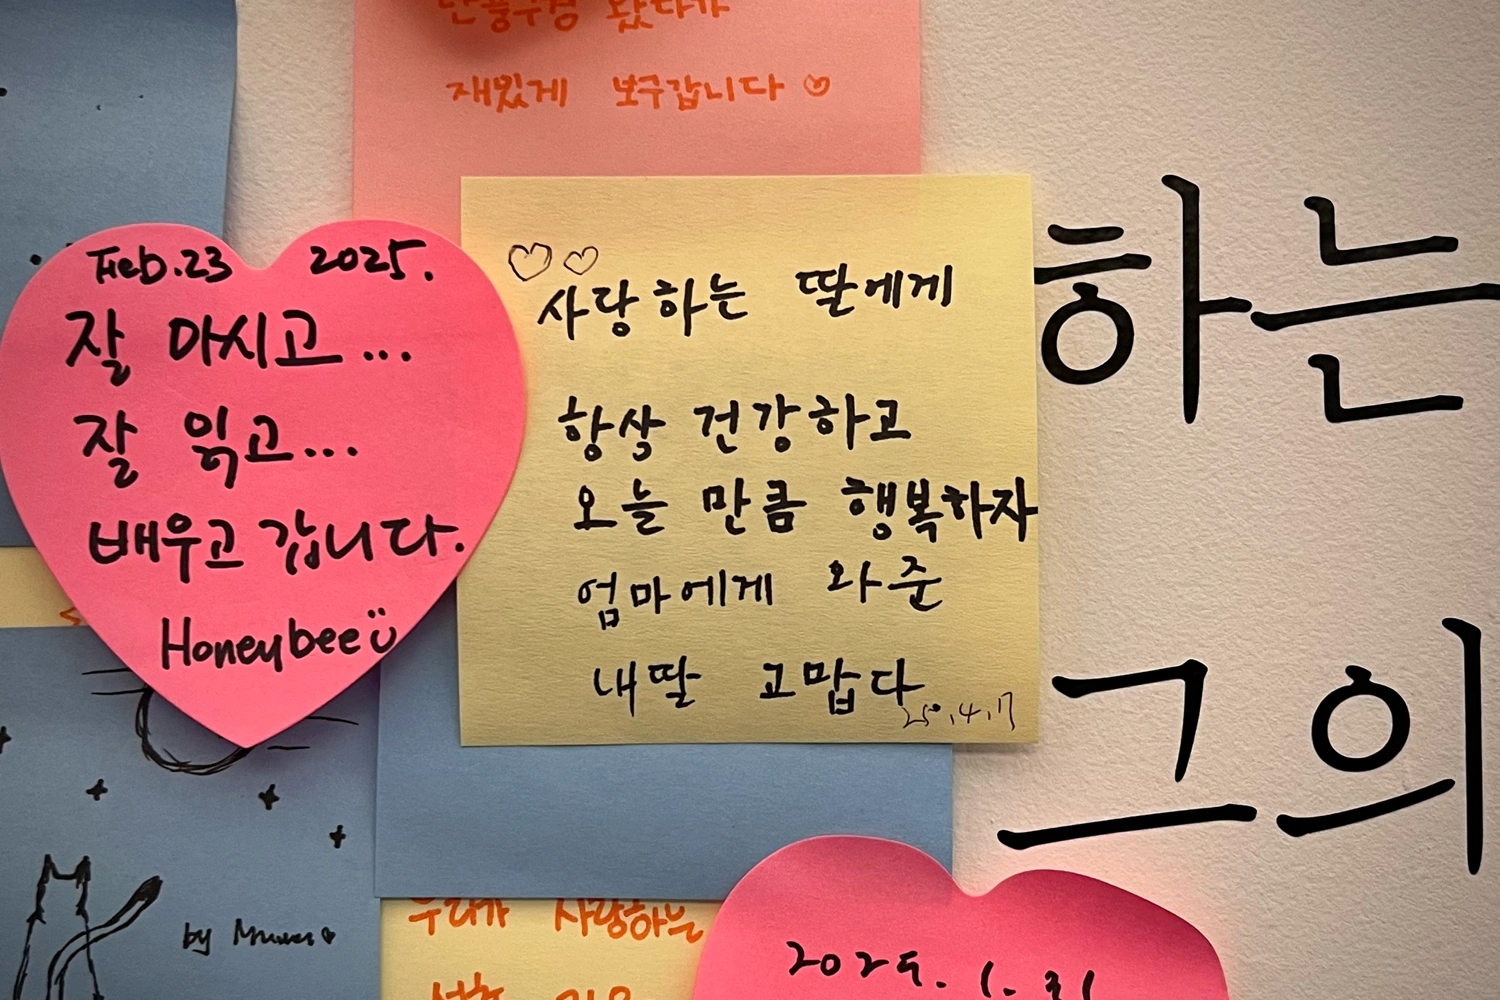 재밌게 보구갑니다
Feb.23 2025.
잘 마시고...
잘 읽고...
배우고 갑니다.
Honeybee
사랑하는 딸에게
항상 건강하고
오늘 만큼 행복하자
엄마에게 와준
내딸 고맙다
25.4.17
하는
그의
by
우리가 사랑하는
2025. 1. 31